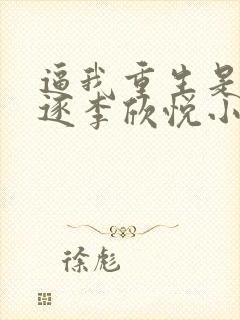 逼我重生是
逐李欣悦小
徐彪